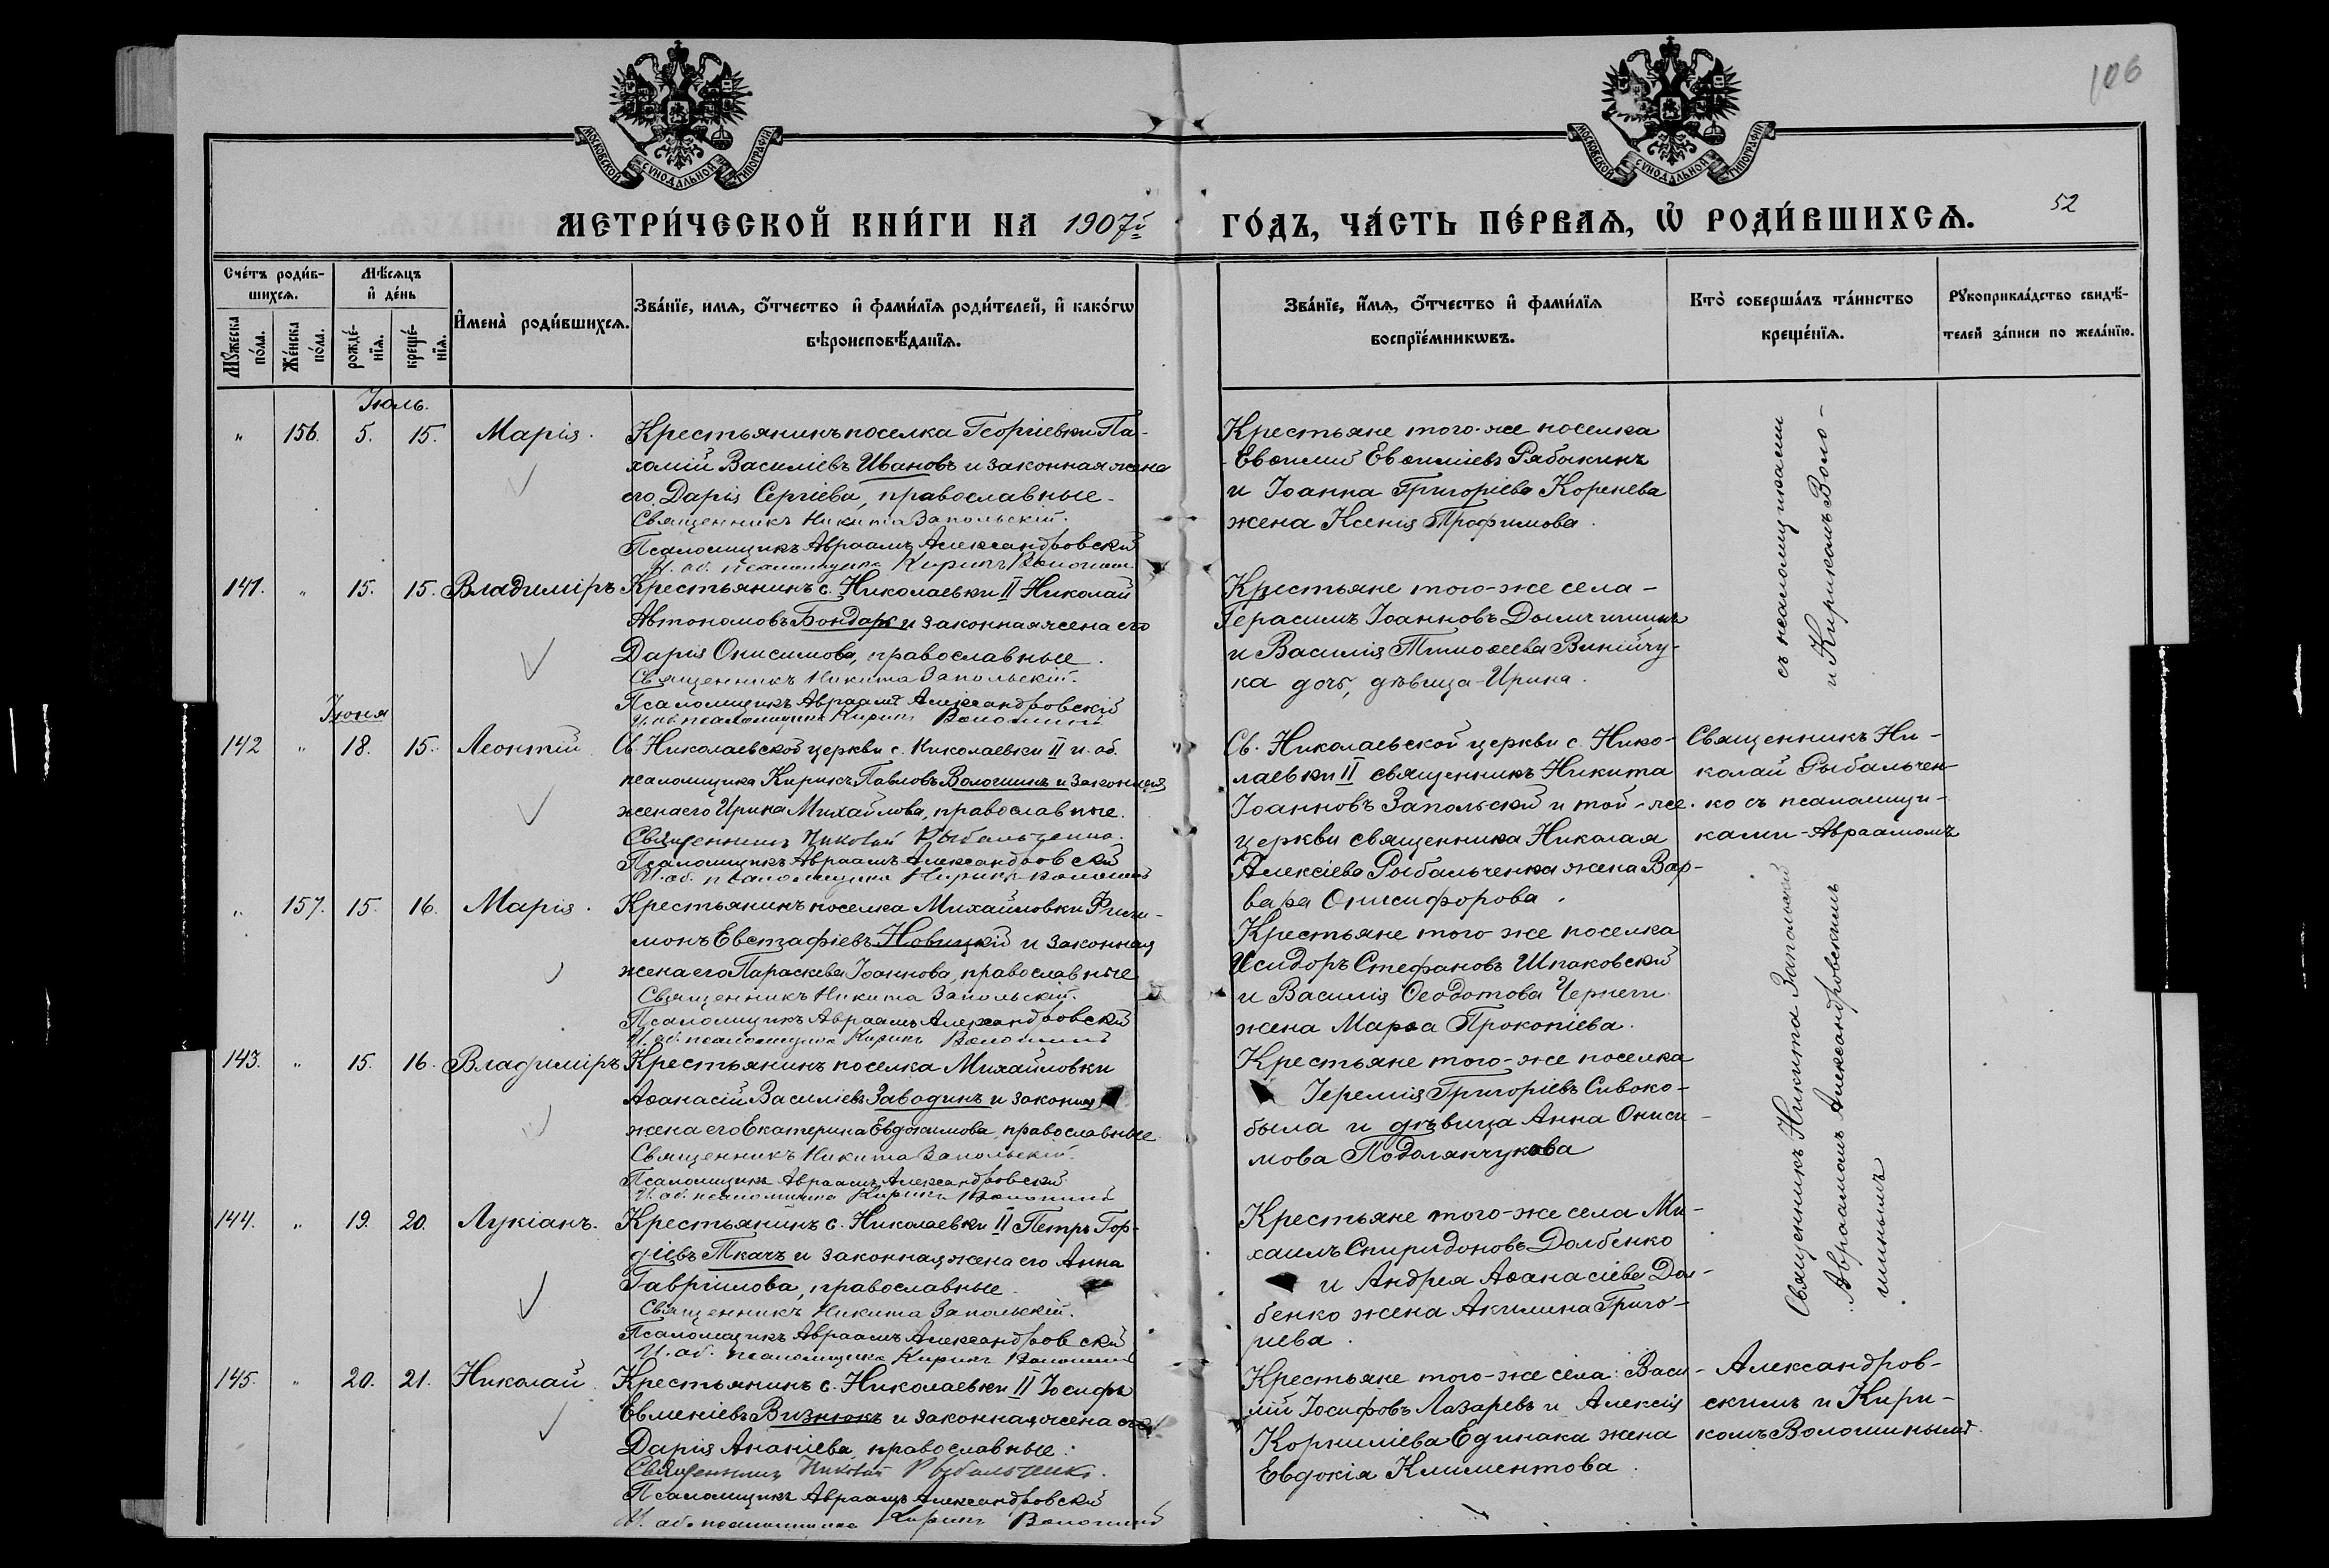 106
МОСКОВСКОЙ СУНОДАЛЬНОЙ ТИПОГРАФІИ
МОСКОВСКОЙ СУНОДАЛЬНОЙ ТИПОГРАФІИ
МЕТРИ́ЧЕСКОЙ КНИ́ГИ НА 1907й ГО́ДЪ, ЧА́СТЬ ПЕ́РВАѦ, Ѡ҆ РОДИ́ВШИХСѦ.
52
Сче́тъ роди́в-
шихсѧ.
Мꙋжеска
по́ла.
Же́нска
по́ла.
Мѣ́сѧцъ
и҆ де́нь
рожде́-
нїѧ.
креще́-
нїѧ.
И҆мена̀ роди́вшихсѧ.
Зва́нїе, имѧ, ѻ҆́тчество и҆ фами́лїѧ роди́телей, и҆ како́гѡ
вѣроисповѣ́данїѧ.
Зва́нїе, и҆́мѧ, ѻ҆́тчество и҆ фами́лїѧ
воспрїе́мникѡвъ.
Кто̀ соверша́лъ та́инство
креще́нїѧ.
Рꙋкоприкла́дство свидѣ́-
телей за́писи по жела́нїю.
Іюль.
" 156. 5. 15. Марія.
Крестьянинъ поселка Георгіевки Па-
хомій Василіевъ Ивановъ и законная жена
его Дарія Сергіева, православные.
Священникъ Никита Запольскій.
Псаломщикъ Авраамъ Александровскій
И. об. псаломщика Кирикъ Волошинъ
Крестьяне того-же поселка
Евѳимій Евѳиміевъ Рябыкинъ
и Іоанна Григоріева Коренева
жена Ксенія Трофимова.
141. " 15. 15. Владиміръ
Крестьянинъ с. Николаевки II Николай
Автономовъ Бондарь и законная жена его
Дарія Онисимова, православные.
Священникъ Никита Запольскій.
Псаломщикъ Авраамъ Александровскій
И. об. псаломщика Кирикъ Волошинъ
Крестьяне того-же села -
Герасимъ Іоанновъ
и Василія Тимоѳеева Винійчу-
ка дочь, дѣвица Ирина.
съ псаломщиками
и Кирикомъ Воло-
Іюня
142 " 18. 15. Леонтій
Св. Николаевской церкви с. Николаевки II и. об.
псаломщика Кирикъ Павловъ Волошинъ и законная
жена его Ирина Михайлова, православные.
Священникъ Николай Рыбальченко.
Псаломщикъ Авраамъ Александровскій
И. об. псаломщика Кирикъ Волошинъ
Св. Николаевской церкви с. Нико-
лаевки II священникъ Никита
Іоанновъ Запольскій и той-же
церкви священника Николая
Алексіева Рыбальченка жена Вар-
вара Онисифорова.
Священникъ Ни-
колай Рыбальчен-
ко съ псаломщи-
ками Авраамомъ
" 157. 15. 16. Марія.
Крестьянинъ поселка Михайловки Фили-
монъ Евстафіевъ Новицкій и законная
жена его Параскева Іоаннова, православные
Священникъ Никита Запольскій.
Псаломщикъ Авраамъ Александровскій
И. об. псаломщика Кирикъ Волошинъ
Крестьяне того же поселка
Исидоръ Стефановъ Шпаковскій
и Василія Ѳеодотова
жена Марѳа Прокопіева.
143. " 15. 16. Владиміръ
Крестьянинъ поселка Михайловки
Аѳанасій Василіевъ Заводинъ и законная
жена его Екатерина Евдокимова, православные
Священникъ Никита Запольскій.
Псаломщикъ Авраамъ Александровскій
И. об. псаломщика Кирикъ Волошинъ
Крестьяне того-же поселка
Іеремія Григоріевъ Сивоко-
была и дѣвица Анна Ониси-
мова Подолянчукова
144. " 19. 20. Лукіанъ.
Крестьянинъ с. Николаевки II Петръ Гор-
діевъ Ткачъ и законная жена его Анна
Гавріилова, православные.
Священникъ Никита Запольскій.
Псаломщикъ Авраамъ Александровскій
И. об. псаломщика Кирикъ Волошинъ
Крестьяне того-же села Ми-
хаилъ Спиридоновъ Долбенко
и Андрея Аѳанасіева Дол-
бенко жена Акилина Григо-
ріева.
Священникъ Никита Запольскій
Авраамомъ Александровскимъ
шинымъ
145. " 20. 21. Николай
Крестьянинъ с. Николаевки II Іосифъ
Евменіевъ Визнюкъ и законная жена его
Дарія Ананіева, православные.
Священникъ Николай Рыбальченко.
Псаломщикъ Авраамъ Александровскій
И. об. псаломщика Кирикъ Волошинъ
Крестьяне того-же села: Васи-
лій Іосифовъ Лазаревъ и Алексія
Корниліева Единака жена
Евдокія Климентова.
Александров-
скимъ и Кири-
комъ Волошинымъ.